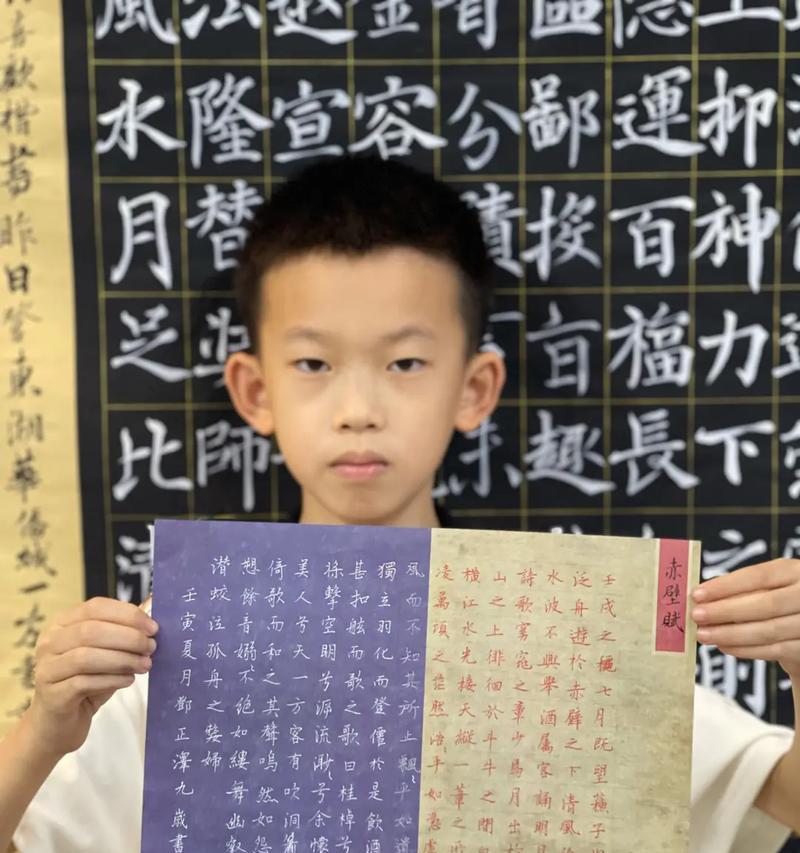 抑神力下
隱運百福長
區鄙挨盲趣
音兮績
金容
宣
法隆替師
風水月足比清
喜歡楷書昨日登東湖華僑城一方書
赤壁賦
壬戌之穐七月既望蘇子
泛舟遊於赤壁之下清風
水波不興舉酒屬客誦明月
詩歌窈窕之章少焉月出於
山之上徘徊於斗牛之間
橫江水光接天縱一葦之所
凌萬頃之茫然浩乎如馮虛
風而不知其所止飄乎如遺
獨立羽化而登僊於是飲酒
甚扣舷而歌之歌曰桂棹兮
擊空明兮溯流渺、兮余懷
美人兮天一方客有吹洞簫
倚歌而和之其聲嗚然如怨
愬餘音嫋、不絕如縷舞幽壑
潛蛟泣孤舟之嫠婦
壬寅夏月鄧正澤九歲書